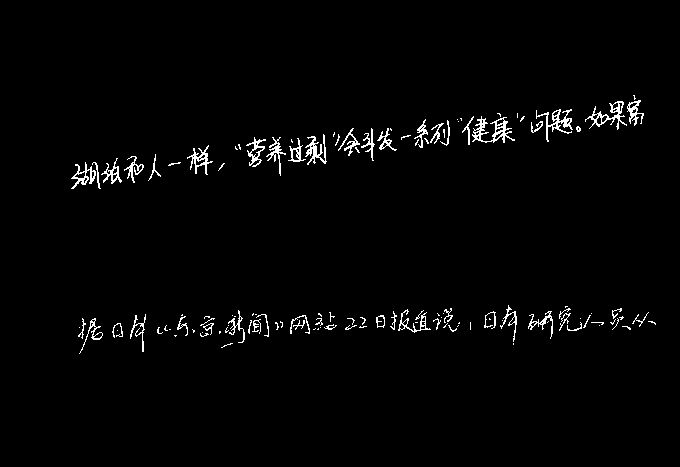 湖泊和人一样，“营养过剩”会引发一系列“健康”问题。如果富
据日本《东京新闻》网站22日报道说，日本研究人员从